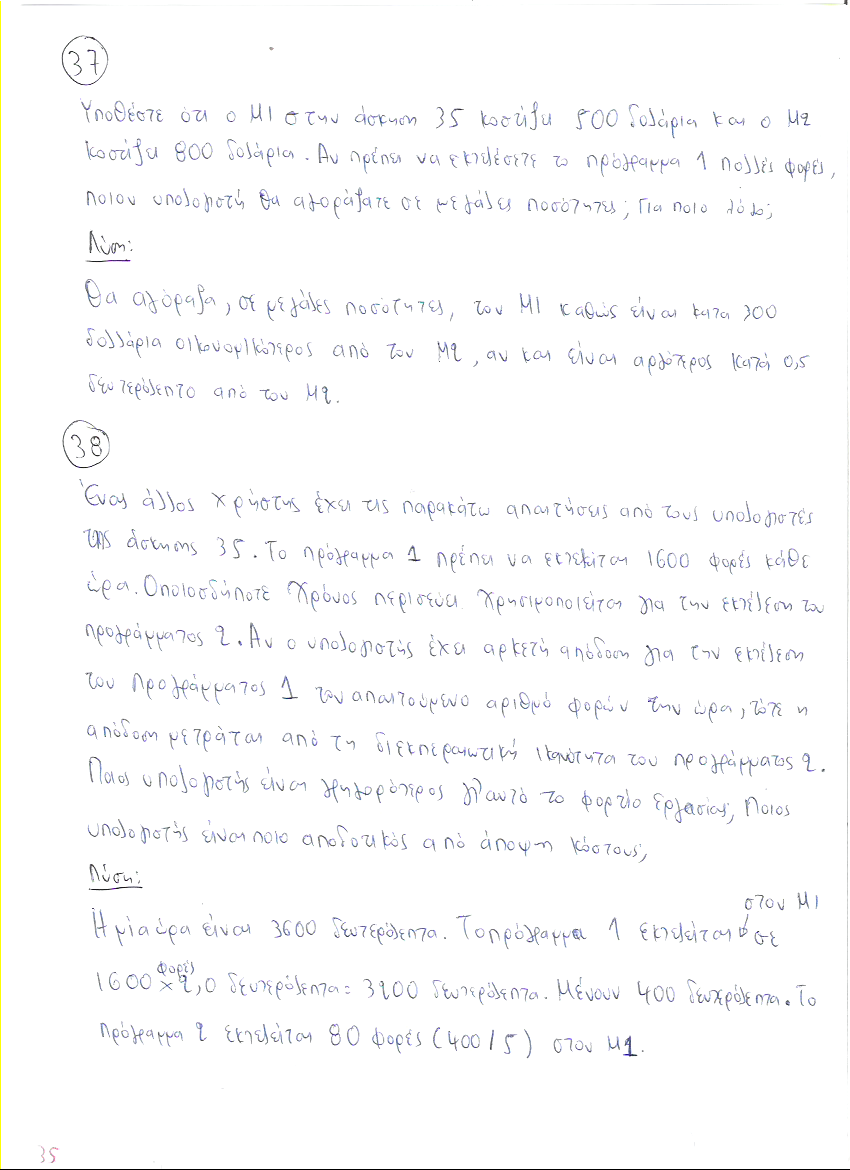 37
Υποθέστε ότι ο M1 στην άσκηση 35 κοστίζει 500 δολάρια και ο M2
κοστίζει 800 δολάρια. Αν πρέπει να εκτελέσετε το πρόγραμμα 1 πολλές φορές,
ποιον υπολογιστή θα αγοράζατε σε μεγάλες ποσότητες; Για ποιο λόγο;
Λύση:
Θα αγόραζα, σε μεγάλες ποσότητες, τον M1 καθώς είναι κατα 300
δολλάρια οικονομικότερος από τον M2, αν και είναι αργότερος κατά 0,5
δευτερόλεπτο από τον M2.
38
Ένας άλλος χρήστης έχει τις παρακάτω απαιτήσεις από τους υπολογιστές
της άσκησης 35. Το πρόγραμμα 1 πρέπει να εκτελείται 1600 φορές κάθε
ώρα. Οποιοσδήποτε χρόνος περισεύει χρησιμοποιείται για την εκτέλεση του
προγράμματος 2. Αν ο υπολογιστής έχει αρκετή απόδοση για την εκτέλεση
του προγράμματος 1 τον απαιτούμενο αριθμό φορών την ώρα, τότε η
απόδοση μετράται από τη διεκπεραιωτική ικανότητα του προγράμματος 2.
Ποιος υπολογιστής είναι γρηγορότερος γι'αυτό το φορτίο εργασίας; Ποιος
υπολογιστής είναι ποιο αποδοτικός από άποψη κόστους;
Λύση:
Η μία ώρα είναι 3600 δευτερόλεπτα. Το πρόγραμμα 1 εκτελείται στον M1 σε
1600 φορές × 2,0 δευτερόλεπτα = 3200 δευτερόλεπτα. Μένουν 400 δευτερόλεπτα. Το
πρόγραμμα 2 εκτελείται 80 φορές (400/5) στον M1.
35